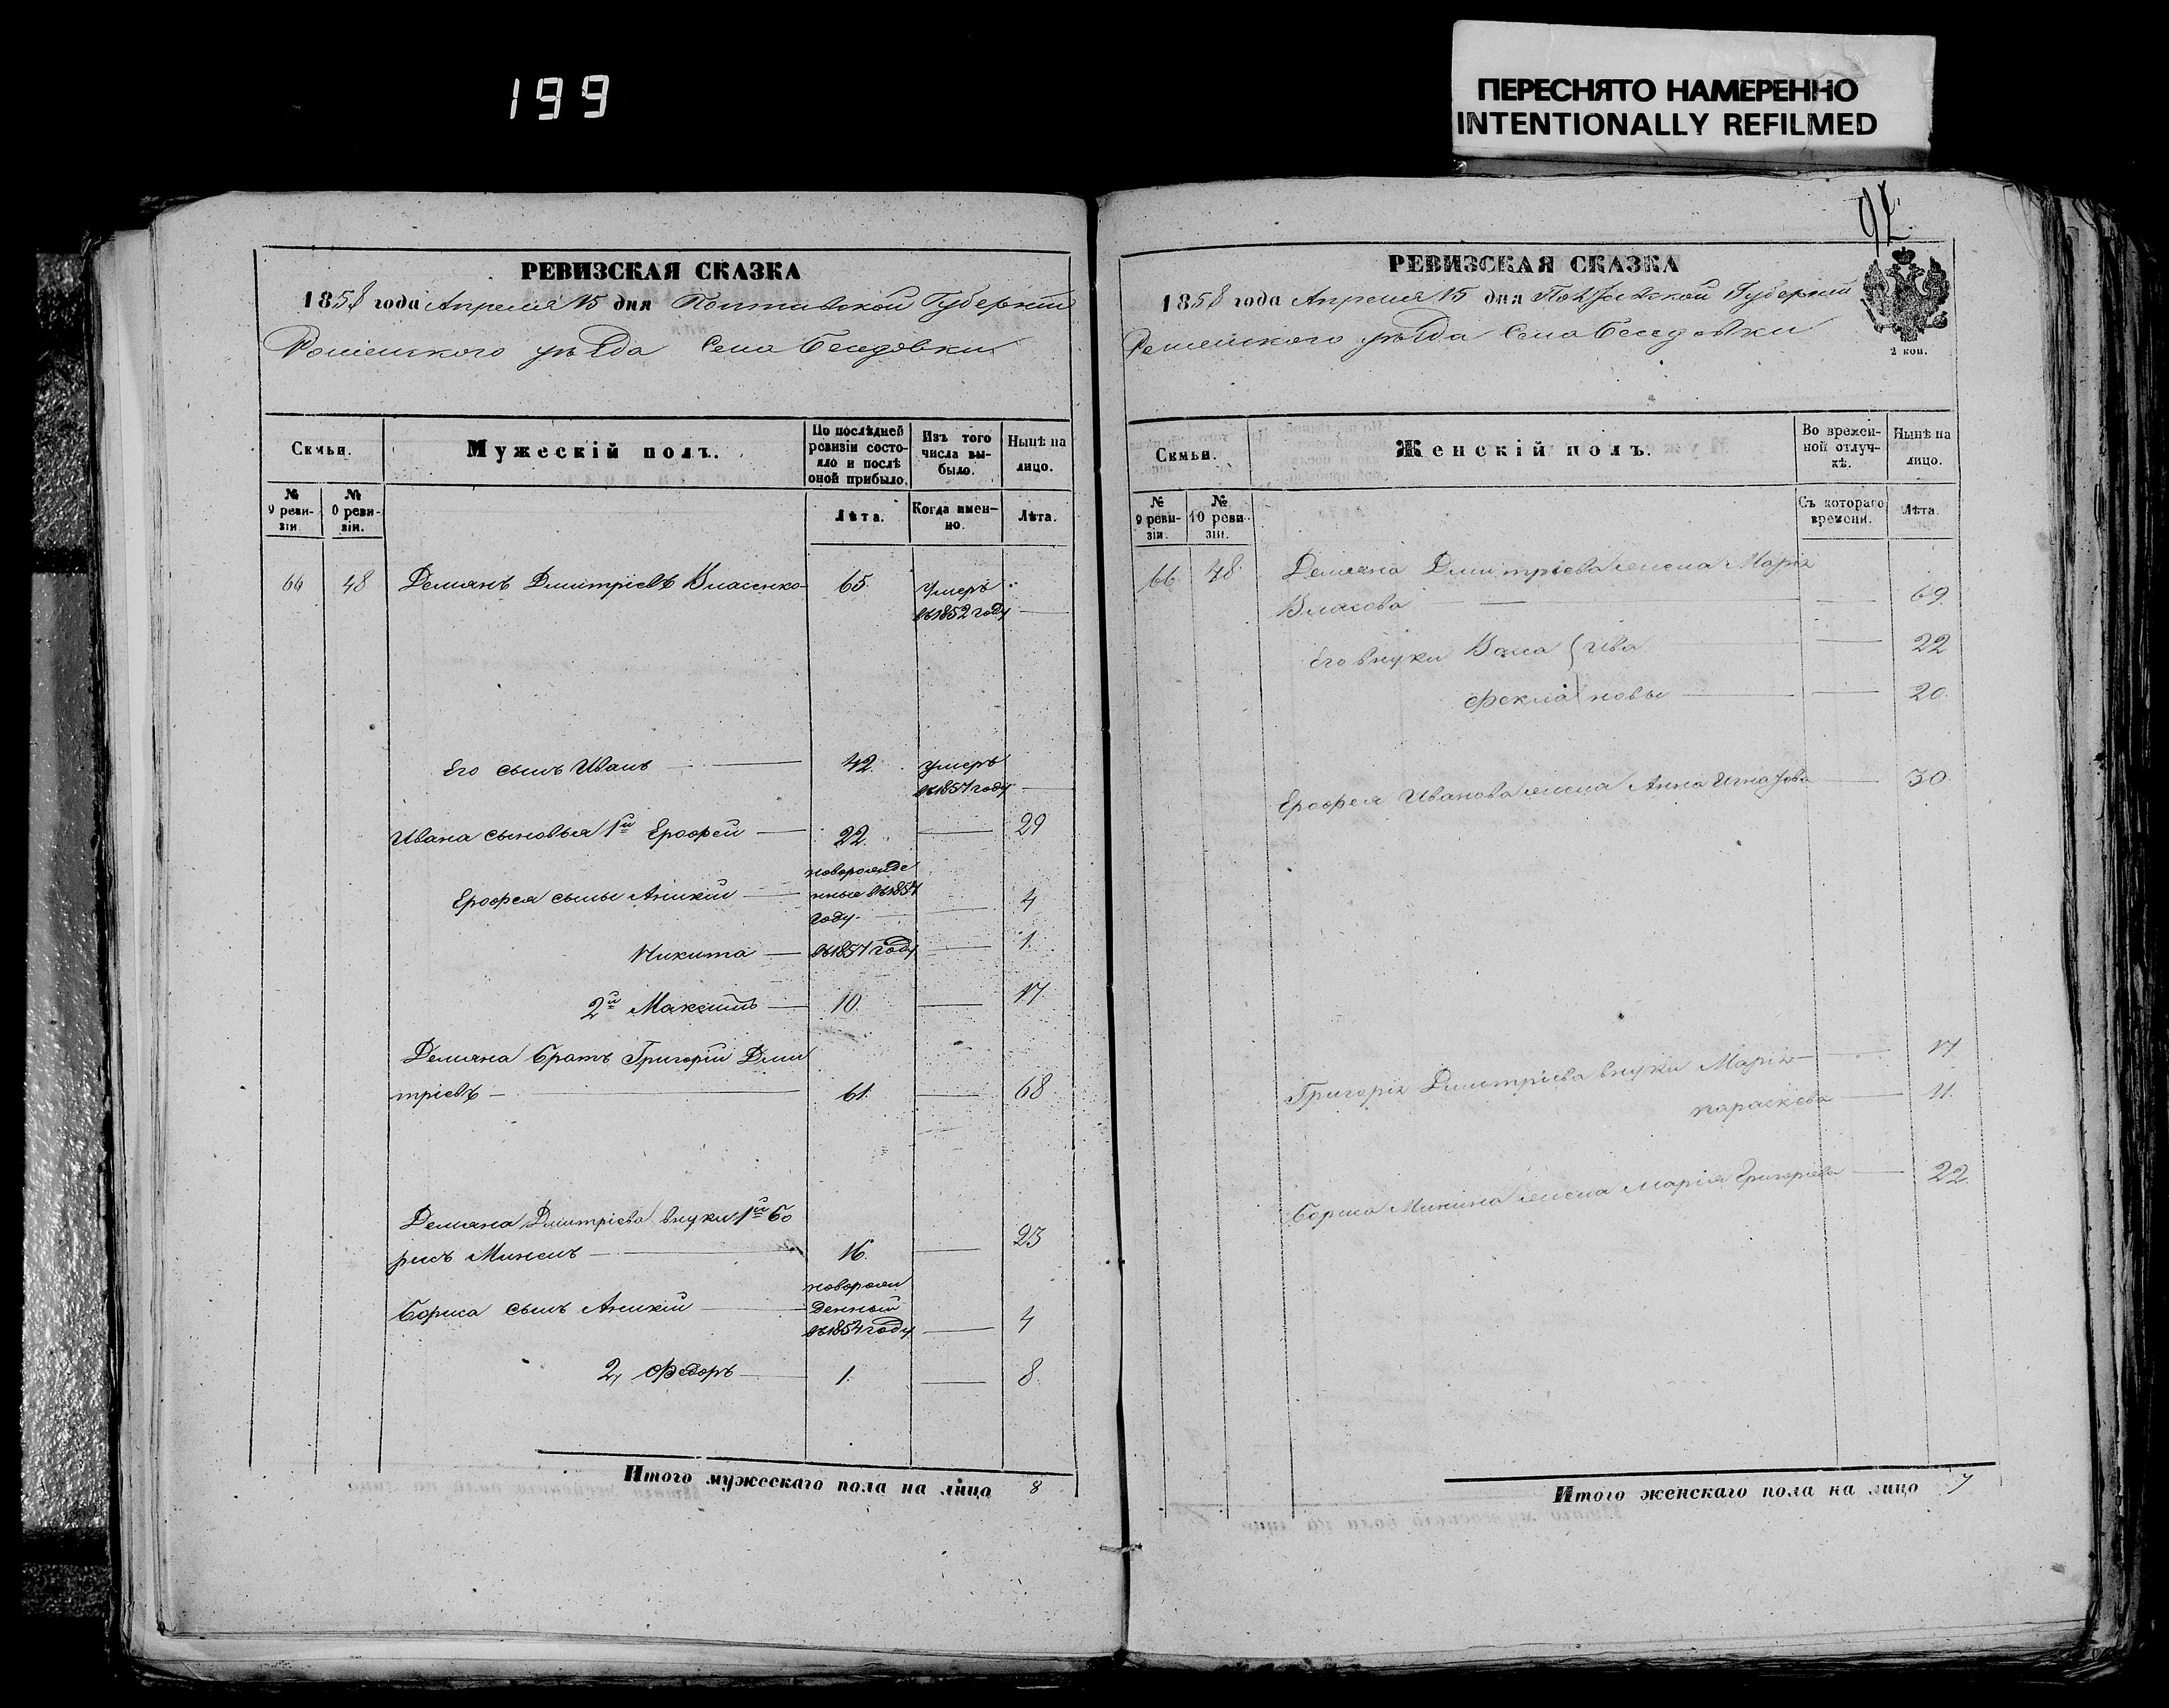 199
ПЕРЕСНЯТО НАМЕРЕННО
INTENTIONALLY REFILMED
92.
РЕВИЗСКАЯ СКАЗКА
1858 года Апреля 15 дня Полтавской Губерніи
Роменского уѣзда Села Беседовки
Семьи.
Мужескій полъ.
По послѣдней ревизіи состояло и послѣ оной прибыло.
Изъ того числа выбыло.
Нынѣ на лицо.
№ 9 ревизіи.
№ 0 ревизіи.
Лѣта.
Когда именно.
Лѣта.
66 48 Демянъ Дмитріевъ Власенко 65 Умеръ
въ 1852 году
Его сынъ Иванъ 42. умеръ
въ 1857 году
Ивана сыновья 1й Ерофей 22. 29
новорожде
Ерофея сыны Аникій нные въ 1854 4
году
Никита въ 1857 году 1.
2й Максимъ 10. 17.
Демяна братъ Григорій Дми
тріевъ 61. 68
Демяна Дмитріева внуки 1й Бо
рисъ Мининъ 16. 23
новорож
Бориса сынъ Аникій денный
въ 1854 году 4
2, Федоръ 1. 8.
Итого мужескаго пола на лицо 8
РЕВИЗСКАЯ СКАЗКА
1858 года Апреля 15 дня Полтавской Губерніи
Роменского уѣзда Села Беседовки
2 коп.
Семьи.
Женскій полъ.
Во временной отлучкѣ.
Нынѣ на лицо.
№ 9 ревизіи.
№ 10 ревизіи.
Съ котораго времени.
Лѣта.
66 48 Демяна Дмитріева жена Марія
Власова 69.
Его внуки { Ива 22
Фекла } новы 20.
Ерофея Иванова жена Анна Игнатова 30
Григорія Дмитріева внуки Марія 17
параскева 11.
Бориса Минина жена Марія Григоріева 22.
Итого женскаго пола на лицо 7